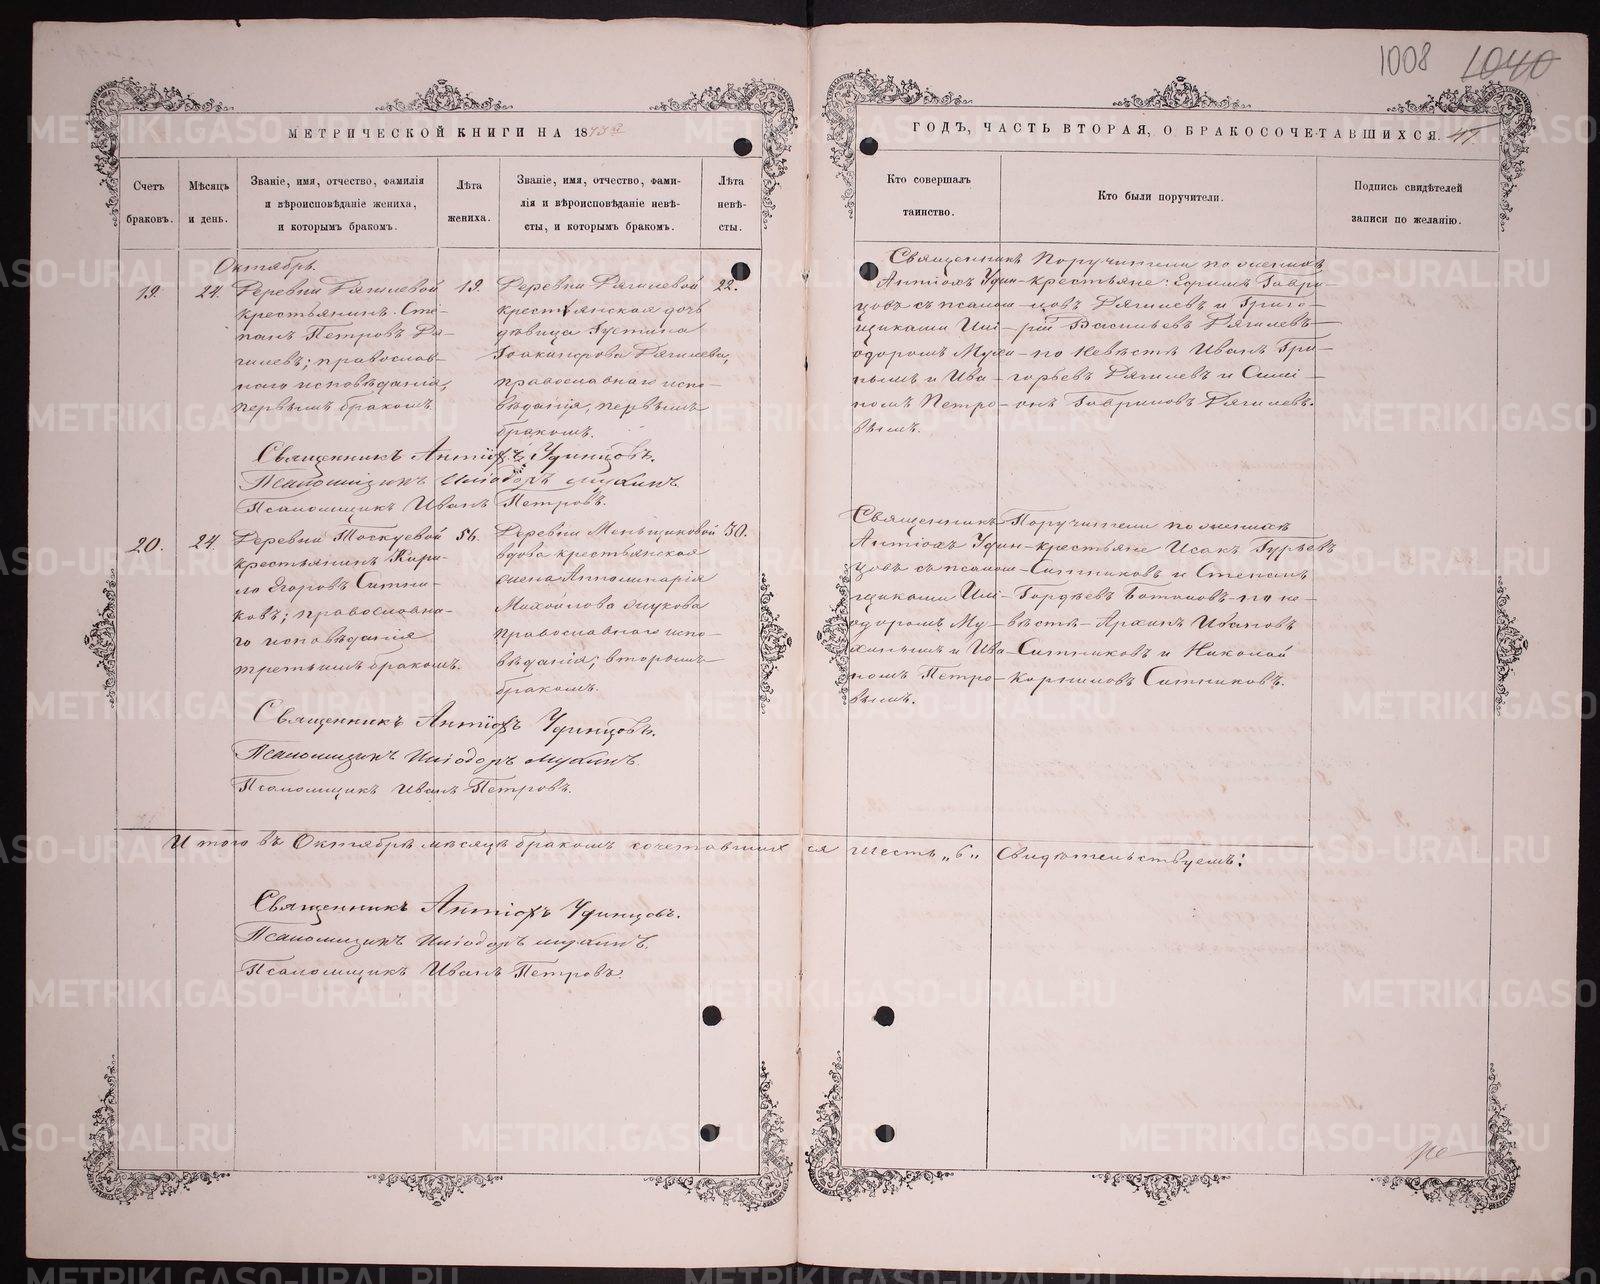 1008 1040
МЕТРИЧЕСКОЙ КНИГИ НА 1873й
ГОДЪ, ЧАСТЬ ВТОРАЯ, О БРАКОСОЧЕТАВШИХСЯ.
Счетъ браковъ.
Мѣсяцъ и день.
Званіе, имя, отчество, фамилія
и вѣроисповѣданіе жениха,
и которымъ бракомъ.
Лѣта жениха.
Званіе, имя, отчество, фами-
лія и вѣроисповѣданіе невѣ-
сты, и которымъ бракомъ.
Лѣта невѣ-
сты.
Кто совершалъ
таинство.
Кто были поручители.
Подпись свидѣтелей
записи по желанію.
Октябрь.
19.
24.
Деревни Дягилевой
крестьянинъ Сте-
панъ Петровъ Дя-
гилевъ; православ-
наго исповѣданія,
первымъ бракомъ.
19.
Деревни Дягилевой
крестьянская дочь
дѣвица Густина
Дягилева,
православнаго испо-
вѣданія, первымъ
бракомъ.
22.
Священникъ
Антіохъ Удин-
цовъ съ псалом-
щиками Иси-
доромъ Мухи-
нымъ и Ива-
номъ Петро-
вымъ.
Поручители по женихѣ
крестьяне: Ефимъ Гаври-
ловъ Дягилевъ и Григо-
рій Васильевъ Дягилевъ
по невѣстѣ Иванъ Гри-
горьевъ Дягилевъ и Симе-
онъ Гавриловъ Дягилевъ.
Священникъ Антіохъ Удинцовъ.
Псаломщикъ Исидоръ Мухинъ.
Псаломщикъ Иванъ Петровъ.
20.
24.
Деревни Токсуевой
крестьянинъ Кири-
ло Егоровъ Ситни-
ковъ; православна-
го исповѣданія
третьимъ бракомъ.
56.
Деревни Меньщиковой
вдова крестьянская
жена Апполинарія
Михайлова Жукова
православнаго испо-
вѣданія; вторымъ
бракомъ.
30.
Священникъ
Антіохъ Удин-
цовъ съ псалом-
щиками Иси-
доромъ Му-
хинымъ и Ива-
номъ Петро-
вымъ.
Поручители по женихѣ
крестьяне Исакъ Гурьевъ
Ситниковъ и Степанъ
Гордѣевъ Ботовъ по не-
вѣстѣ Архипъ Ивановъ
Ситниковъ и Николай
Корниловъ Ситниковъ.
Священникъ Антіохъ Удинцовъ.
Псаломщикъ Исидоръ Мухинъ.
Псаломщикъ Иванъ Петровъ.
Итого въ Октябрѣ мѣсяцѣ бракомъ сочетавшихся шесть „6„ Свидѣтельствуемъ:
Священникъ Антіохъ Удинцовъ.
Псаломщикъ Исидоръ Мухинъ.
Псаломщикъ Иванъ Петровъ.
METRIKI.GASO-URAL.RU